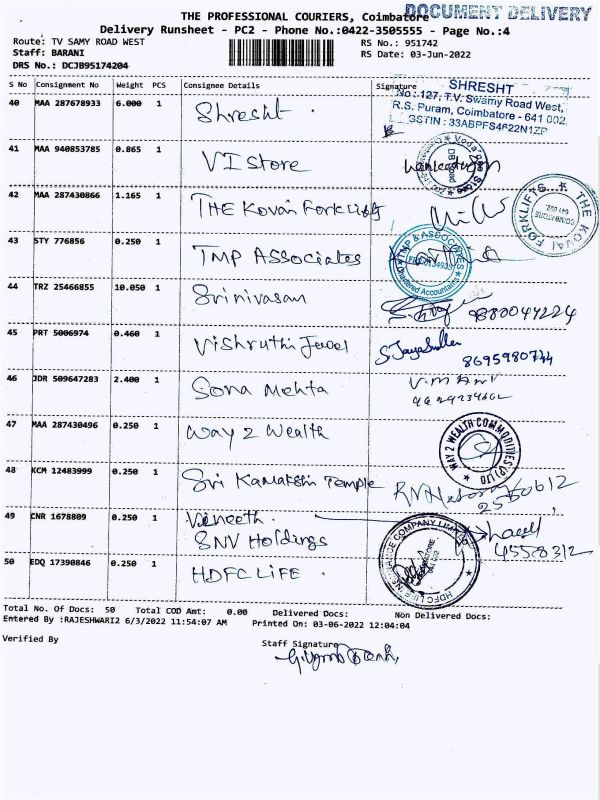 DOCUMENT DELIVERY
THE PROFESSIONAL COURIERS, Coimbatore
Delivery Runsheet - PC2 - Phone No.:0422-3505555 - Page No.:4
Route: TV SAMY ROAD WEST
RS No.: 951742
Staff: BARANI
RS Date: 03-Jun-2022
DRS No.: DCJB95174204
S No Consignment No Weight PCS Consignee Details Signature
SHRESHT
No : 127, T.V. Swamy Road West,
R.S. Puram, Coimbatore - 641 002.
GSTIN : 33ABPFS4622N1ZP
40 MAA 287678933 6.000 1 Shresht
41 MAA 940853785 0.865 1 VI Store
42 MAA 287430866 1.165 1 THE Kovai Forklifts
THE KOVAI FORKLIFTS
COIMBATORE
641 002.
43 STY 776856 0.250 1 TMP Associates
TMP & ASSOCIATES
Chartered Accountants
44 TRZ 25466855 10.050 1 Srinivasan
45 PRT 5006974 0.460 1 Vishruthi Jewel
8695980744
46 JDR 509647283 2.400 1 Sona Mehta
47 MAA 287430496 0.250 1 Way 2 Wealth
WAY 2 WEALTH COMMODITIES (P) LTD
48 KCM 12483999 0.250 1 Sri Kamakshi Temple
49 CNR 1678809 0.250 1 Vineeth
SNV Holdings
4558312
50 EDQ 17390846 0.250 1 HDFC LIFE
HDFC LIFE INSURANCE COMPANY LIMITED
Total No. Of Docs: 50 Total COD Amt: 0.00 Delivered Docs: Non Delivered Docs:
Entered By :RAJESHWARI2 6/3/2022 11:54:07 AM Printed On: 03-06-2022 12:04:04
Verified By
Staff Signature